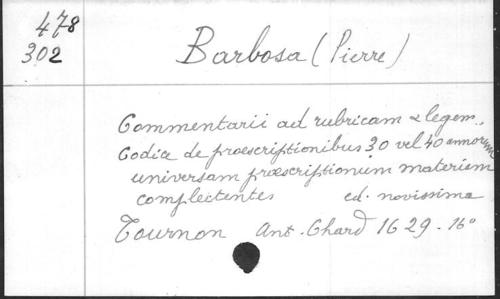 478
302
Barbosa (Pierre)
Commentarii ad rubricam & legem.,
Codice de proescriptionibus 30 vel 40 annorum
universam proescriptionum materiem
complectentes ed. novissima
Tournon Ant. Chard 1629 - 16°